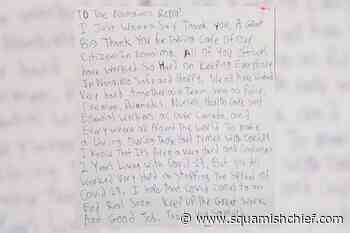 TO The
I Just Wanna Say Thank You, A Great
Big Thank You For Taking Care Of Our
Citizens In Nanaimo. All Of You
have Worked So Hard on Keeping Everybody
In Nanaimo Safe and Happy. We all have worked
Very hard together as a Team Such as Police,
Fireman, Paramedics, Nurses, Health Care, and
Essential Workers all Over Canada, and
Everywhere all Around the World To make
a Living During These hard times with Covid19
I Know That It's been a very hard and
2 Years Living with Covid 19. But
Worked Very Hard on Stopping The Spread of
Covid 19. I hope that Covid comes to an
End Real Soon. Keep Up the Great Work
And Good Job.
www.squamishchief.com